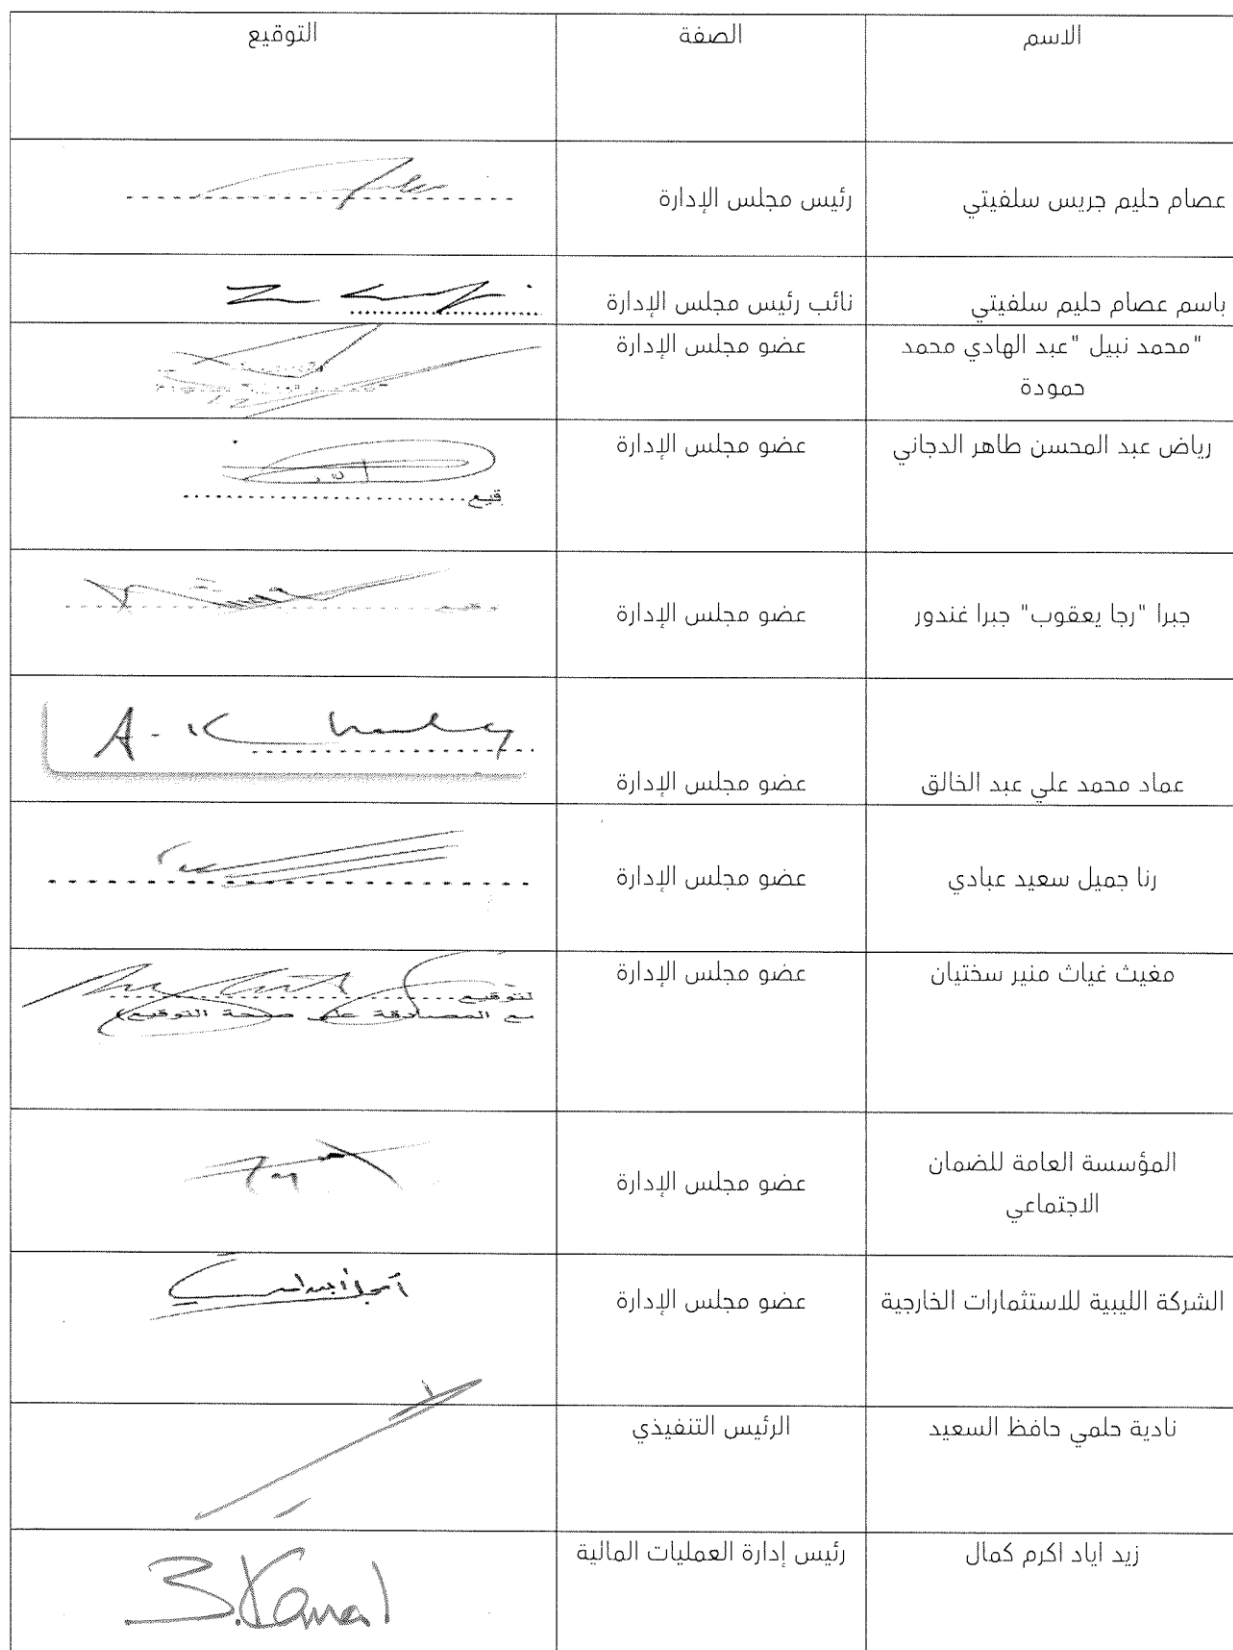 الاسم الصفة التوقيع
عصام حليم جريس سلفيتي رئيس مجلس الإدارة
باسم عصام حليم سلفيتي نائب رئيس مجلس الإدارة
"محمد نبيل "عبد الهادي محمد عضو مجلس الإدارة
حمودة
رياض عبد المحسن طاهر الدجاني عضو مجلس الإدارة
قيع
جبرا "رجا يعقوب" جبرا غندور عضو مجلس الإدارة
A. Khaleq
عماد محمد علي عبد الخالق عضو مجلس الإدارة
رنا جميل سعيد عبادي عضو مجلس الإدارة
مغيث غياث منير سختيان عضو مجلس الإدارة
لتوقيع
مع المصادقة على صحة التوقيع)
المؤسسة العامة للضمان
الاجتماعي
عضو مجلس الإدارة
الشركة الليبية للاستثمارات الخارجية عضو مجلس الإدارة
نادية حلمي حافظ السعيد الرئيس التنفيذي
زيد اياد اكرم كمال رئيس إدارة العمليات المالية
Z.Kamal